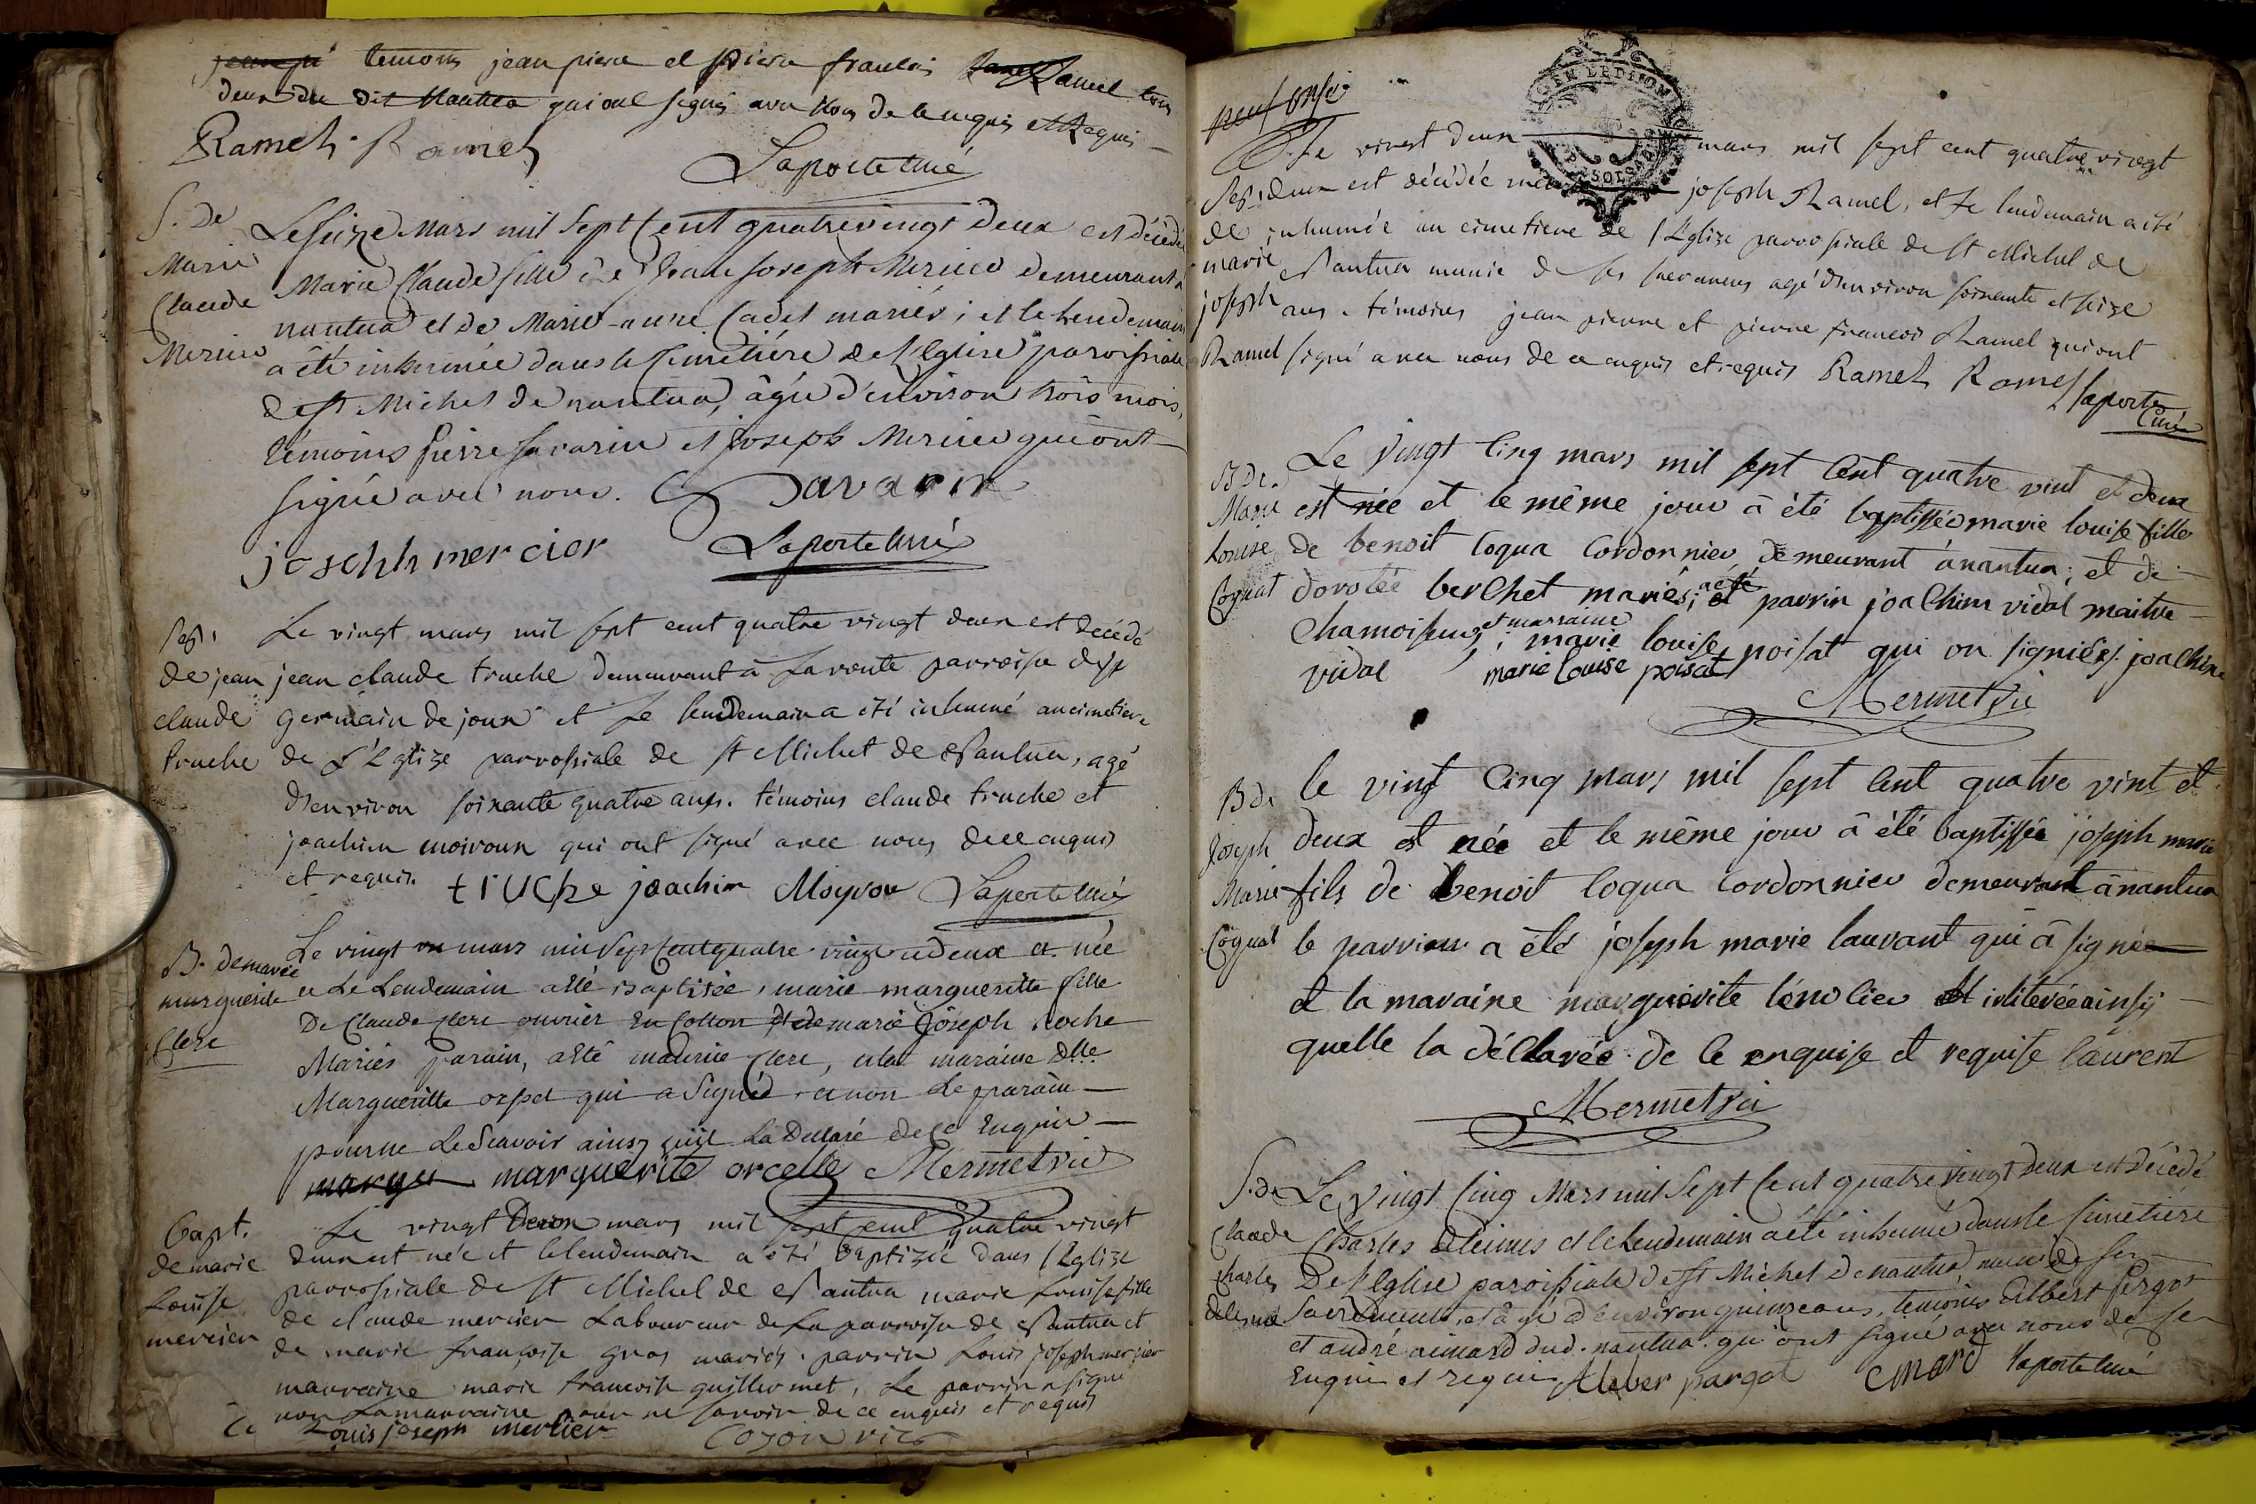 temoins jean pierre et pierre francois Ramel tous
deux du dit Nantua qui ont signé avec Nous de ce enquis et Requis
Ramel Ramel
Laporte Curé
S. de
Marie
Claude
Mercier
Le Seize Mars mil Sept Cent quatrevingt Deux est décédé
Marie Claude fille de Jean Joseph Mercier demeurant à
nantua et de Marie-anne Cadet mariés; et le lendemain
a été inhumée dans le Cimetière de l'Eglise paroissiale
de St Michel de nantua, âgée d'environ trois mois,
témoins pierre Savarin et Joseph Mercier qui ont
signé avec nous. Savarin
joschh mercier Laporte Curé
Sep.
de jean
claude
truche
Le vingt mars mil sept cent quatre vingt deux est decédé
jean claude truche demeurant à La voute parroisse de st
germain de joux et le lendemain a été inhumé au cimetiere
de L'Eglize parrossiale de st Michel de Nantua, agé
d'environ soixante quatre ans. témoins claude truche et
joachim moiroux qui ont signé avec nous de ce enquis
et requis. truche joachim Moyrou Laporte Curé
B. de marie
marguerite
Clerc
Le vingt un mars mil Sept Cent quatre vingt et deux et née
et Le Lendemain a été baptisée, marie marguerite fille
De Claude Clerc ouvrier En Cotton et de marie Joseph Roche
Mariés parain, a été maurice Clerc, et la maraine Dlle
Marguerite orset qui a Signé et non Le parain
pour ne Le Scavoir ainsy qu'il La Declaré de ce Enquis
margu marguerite orcelle Mermet vic
Bapt.
de marie
Louise
mercier
Le vingt Deux mars mil sept cent quatre vingt
deux est née et le lendemain a été baptizée dans l'Eglize
parrossiale de St Michel de Nantua marie Louise fille
de claude mercier Laboureur de La parroisse de Nantua et
de marie françoise gros mariés. parrin Louis joseph mercier
marraine marie francoise guillermet, Le parrin a signé
non La marraine pour ne savoir de ce enquis et requis
Louis joseph mercier Coyon vic
neuf onse
Le vingt deux mars mil sept cent quatre vingt
Sep. deux est décédée marie joseph Ramel, et Le lendemain a été
de inhumée au cimetiere de l'Eglize parrossiale de St Michel de
marie Nantua munie de ses sacremens agé d'environ soixante et seize
joseph ans. témoins jean pierre et pierre francois Ramel qui ont
Ramel signé avec nous de ce enquis et requis Ramel Ramel Laporte
Curé
B de.
Marie
Louise
Coquat
Le Vingt Cinq mars mil sept Cent quatre vint et deux
est née et le même jour à été baptissée marie louise fille
de benoit Coqua Cordonnier demeurant ânantua; et de
dorotée berChet mariés; a été parrin joalChim vidal maitre
Chamoiseur, et marraine; marie louise poisat qui on signiées. joalChim
vidal marie louise poisat
Mermet vic
B de
Joseph
Marie
Coquat
le vint Cinq mars mil sept Cent quatre vint et
deux est née et le même jour â été baptissée joseph marie
fils de benoit Coqua Cordonnier demeurant ânantua
le parrien a été joseph marie lauvant qui â signée
et la maraine marguerite lémolier et inliterée ainsy
quelle la déClarée. de Ce enquise et requise laurent
Mermet vic
S. de
Claude
Charles
deleime
Le Vingt Cinq Mars mil Sept Cent quatre vingt deux est décédé
Charles deleimes et le Lendemain a été inhumé dans le Cimetiere
De l'Eglise paroissiale de St Michel de nantua muni de ses
Sacrements, et âgé d'environ quinze ans, temoins Albert pergot
et andré aimard dud. nantua qui ont signé avec nous de Ce
Enquis et requis Alber pargot emard Laporte Curé